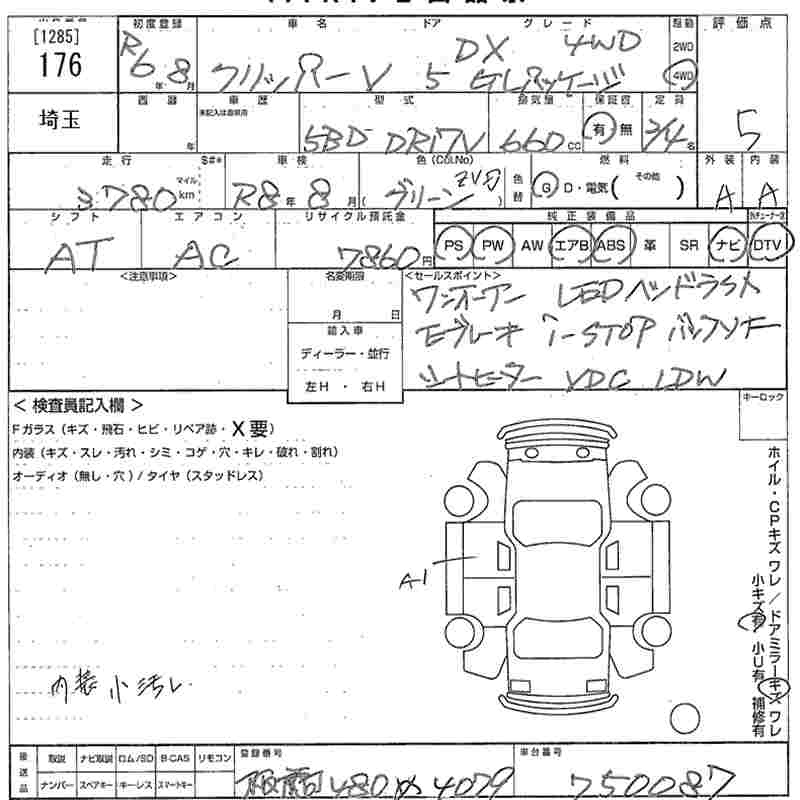 [1285]
176
初度登録 車名 ドア グレード 駆動 評価点
R6年8月 クリッパーV 5 DX 4WD GLパッケージ 2WD 4WD 5
埼玉
西暦 車歴 型式 排気量 保証書 定員
年 未記入は自家用 5BD DR17V 660cc 有 無 2/4名
走行 S#* 車検 色(Col.No) 燃料 外装 内装
3780 マイル km R8年8月 (グリーン ZVG) 色替 G・D・電気( その他 ) A A
シフト エアコン リサイクル預託金 純正装備品
AT AC 7860円 PS PW AW エアB ABS 革 SR ナビ DTV
<注意事項> 名変期限 <セールスポイント>
月 日
輸入車
ディーラー・並行
左H・右H
ワンオーナー LEDヘッドライト
Eブレーキ i-STOP バックソナー
シートヒーター VDC LDW
<検査員記入欄> キーロック
Fガラス(キズ・飛石・ヒビ・リペア跡・X要)
内装(キズ・スレ・汚れ・シミ・コゲ・穴・キレ・破れ・割れ)
オーディオ(無し・穴)/タイヤ(スタッドレス)
A1
内装小汚れ
ホイル・CPキズ ワレ/ドアミラーキズ ワレ
小キズ有 小U有 補修有
後送品 取説 ナビ取説 ロム/SD B-CAS リモコン 登録番号 車台番号
ナンバー スペアキー キーレス スマートキー 480 4079 750087